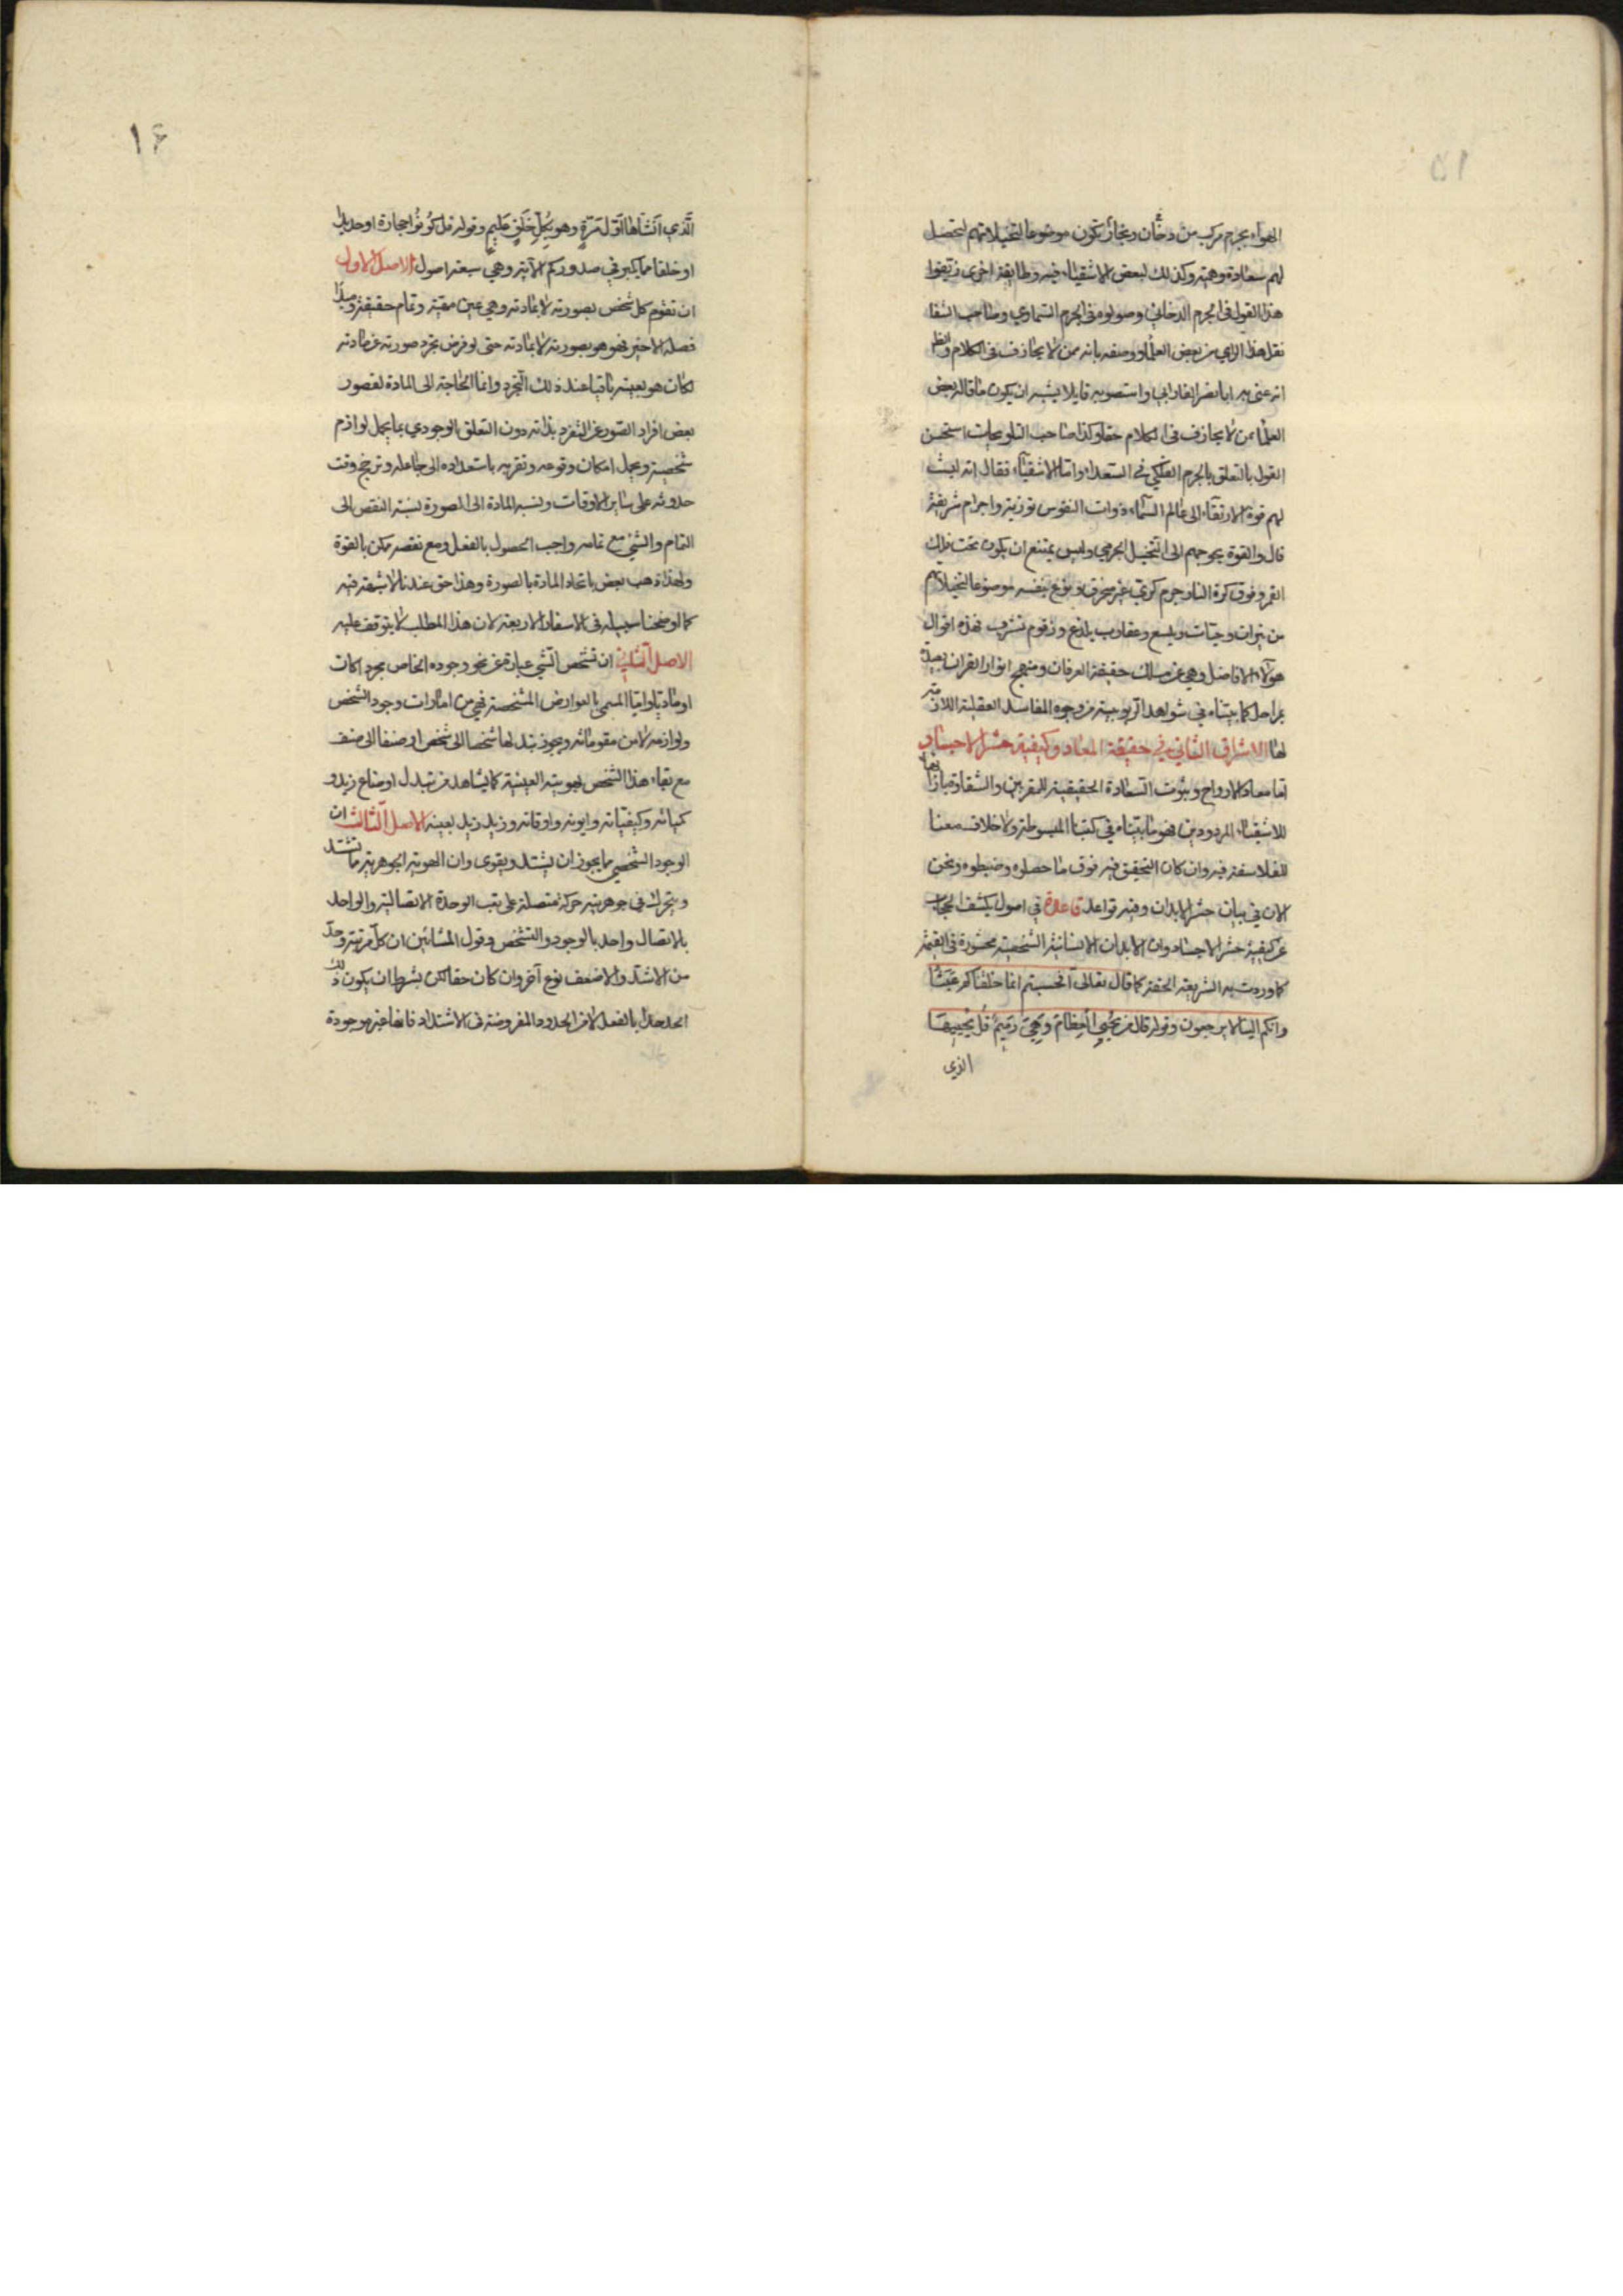 ١٥
الهواء بجرم مركب من دخان وبخار يكون موضوعا لتخيلاتهم لتحصل
لهم سعادة وهمية وكذلك لبعض الاشقياء فيه وطايفة اخرى زيفوا
هذا القول في الجرم الدخاني وصوبوه في الجرم السماوي وصاحب الشفا
نقل هذا الراي من بعض العلماء ووصفه بانه ممن لا يجازف في الكلام والظ
انه عنى به ابا نصر الفارابي واستصوبه قايلا يشبه ان يكون ما قاله بعض
العلماء ممن لا يجازف في الكلام حقا وكذا صاحب التلويحات استحسن
القول بالتعلق بالجرم الفلكي في السعداء واما الاشقياء فقال انه ليست
لهم قوة الارتقاء الى عالم السماء ذوات النفوس نورية واجرام شريفة
قال والقوة يحوجهم الى التخيل الجرمي وليس بممتنع ان يكون تحت فلك
القمر وفوق كرة النار جرم كري غير منخرق هو نوع بنفسه موضوعا لتخيلاتهم
من نيران وحيات ويلسع وعقارب يلدغ وزقوم تشرب فهذه اقوال
هؤلاء الافاضل وهي عن مسلك حقيقة العرفان ومنهج انوار القران بعيدة
بمراحل كما بيناه في شواهد الربوبية من وجوه المفاسد العقلية اللازمة
لها الاشراق الثاني في حقيقة المعاد وكيفية حشر الاجساد
اما معاد الارواح وثبوت السعادة الحقيقية للمقربين والشقاوة بازائها
للاشقياء المردودين فهو ما بيناه في كتبنا المبسوطة ولا خلاف معنا
للفلاسفة فيه وان كان التحقيق فيه فوق ما حصلوه وضبطوه ونحن
الان في بيان حشر الابدان وفيه قواعد قاعدة في اصول يكشف الحجاب
عن كيفية حشر الاجساد وان الابدان الانسانية الشخصية محشورة في القيمة
كما وردت به الشريعة الحقة كما قال تعالى افحسبتم انما خلقناكم عبثا
وانكم الينا لا يرجعون وقوله قال من يحيي العظام وهي رميم قل يحييها
الذي
١٦
الذي انشاها اول مرة وهو بكل خلق عليم وقوله قل كونوا حجارة او حديدا
او خلقا مما يكبر في صدوركم الآية وهي سبعة اصول الاصل الاول
ان تقوم كل شخص بصورته لا بمادته وهي عين مهيته وتمام حقيقته ومبدا
فصله الاخير فهو هو بصورته لا بمادته حتى لو فرض تجرد صورته عن مادته
لكان هو بعينه باقيا عند ذلك التجرد وانما الحاجة الى المادة لقصور
بعض افراد الصور عن التفرد بذاته دون التعلق الوجودي بما يحمل لوازم
شخصية ويحمل امكان وقوعه وتقربه باستعداده الى جاعله وترجح وقت
حدوثه على ساير الاوقات ونسبة المادة الى الصورة نسبة النقص الى
التمام والشيء مع تمامه واجب الحصول بالفعل ومع نقصه ممكن بالقوة
ولهذا ذهب بعض باتحاد المادة بالصورة وهذا حق عندنا لا شبهة فيه
كما اوضحنا سبيله في الاسفار الاربعة لان هذا المطلب لا يتوقف عليه
الاصل الثاني ان تشخص الشي عبارة عن نحو وجوده الخاص مجرد اكان
او ماديا واما المسمى بالعوارض المشخصة فهي من امارات وجود الشخص
ولوازمه لا من مقوماته ويجوز تبدلها شخصا الى شخص او صنفا الى صنف
مع بقاء هذا الشخص بهويته العينية كما يشاهد من تبدل اوضاع زيد و
كمياته وكيفياته وايونه واوقاته وزيد زيد بعينه الاصل الثالث ان
الوجود الشخصي مما يجوز ان يشتد ويقوى وان الهوية الجوهرية مما تشتد
ويتحرك في جوهريته حركة متصلة على نعت الوحدة الاتصالية والواحد
بالاتصال واحد بالوجود والتشخص وقول المشائين ان كل مرتبة وحد
من الاشد والاضعف نوع آخر وان كان حقا لكن بشرط ان يكون ذلك
الحد حدا بالفعل لا من الحدود المفروضة في الاشتداد فانها غير موجودة